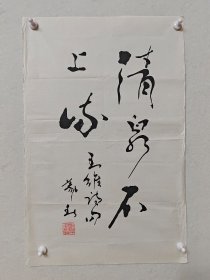 清泉石
上流
王维诗句